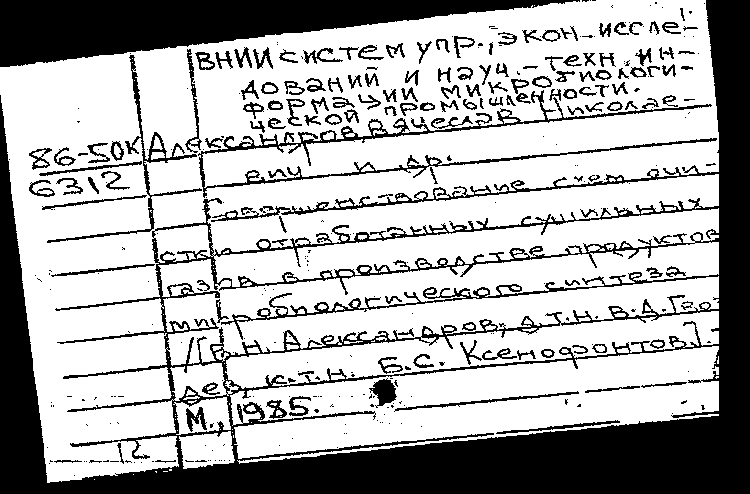 ВНИИ систем упр., экон. иссле-
дований и науч.-техн. ин-
формации микробиологи-
ческой промышленности.
86-50К Александров, Вячеслав Николае-
6312 вич и др.
Совершенствование схем очи-
стки отработанных сушильных
газов в производстве продуктов
микробиологического синтеза
/[В.Н. Александров, д.т.н. В.Д. Гво
дев, к.т.н. Б.С. Ксенофонтов].
М., 1985.
12